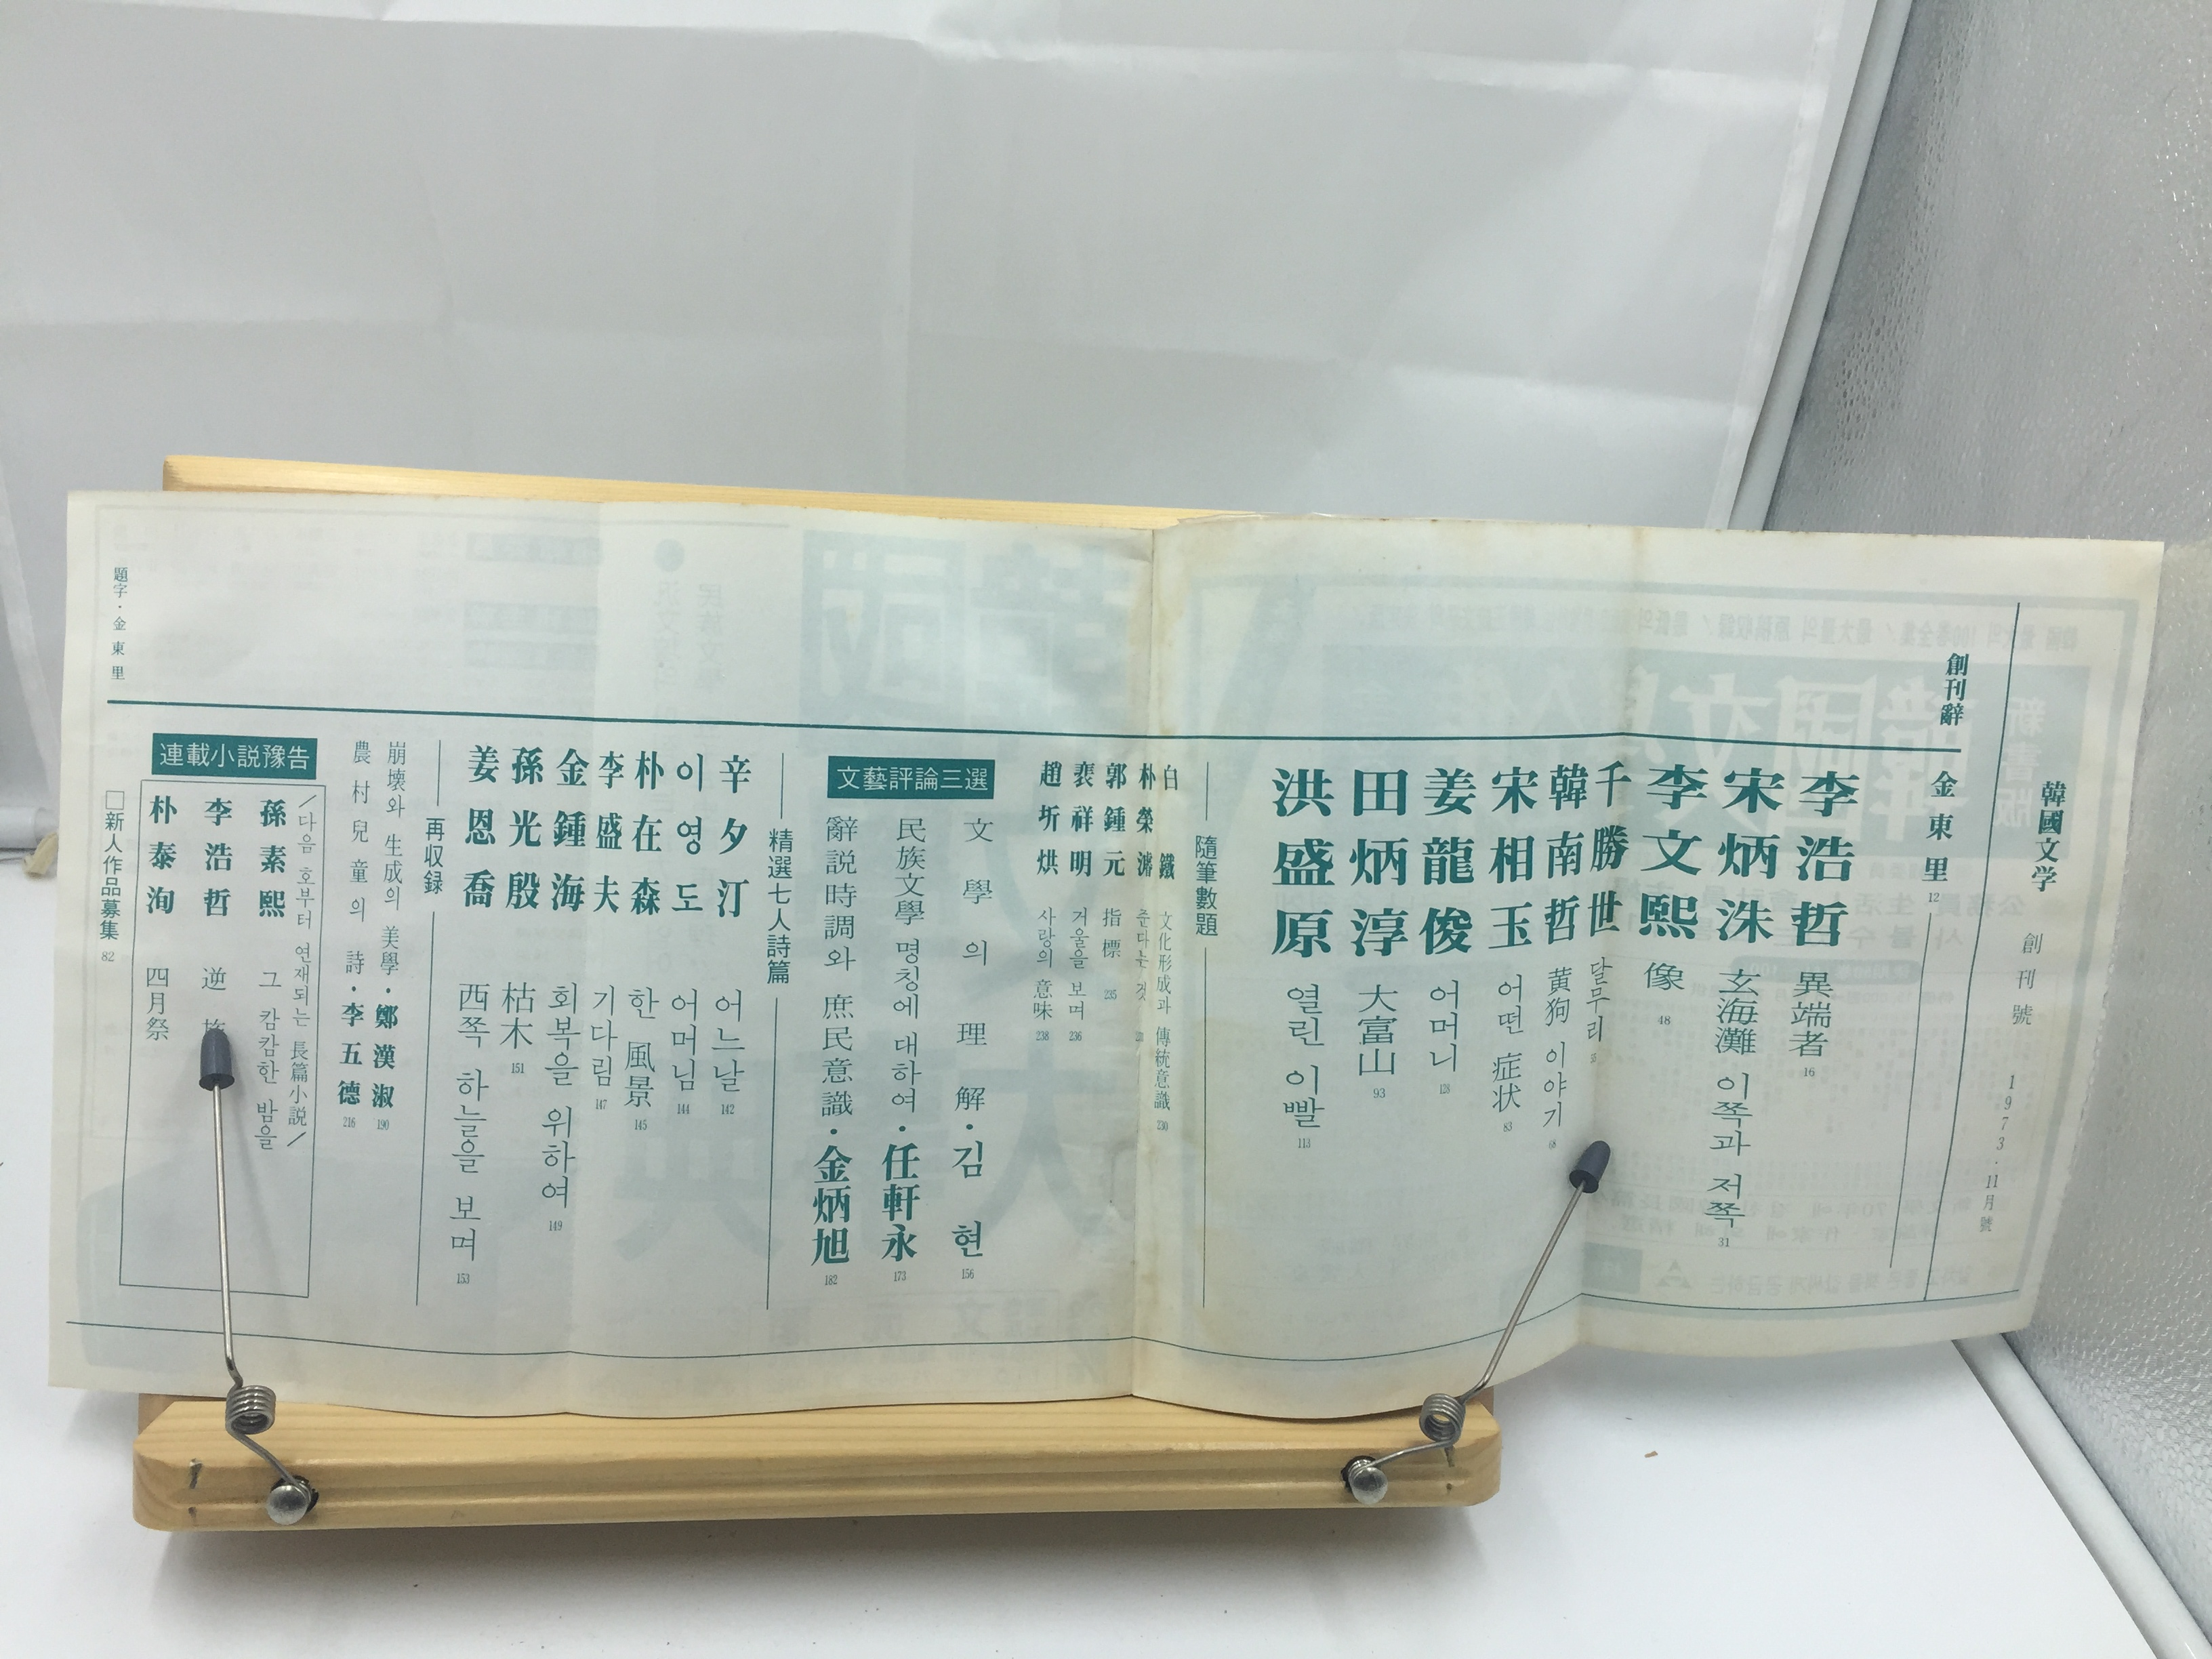 韓國文学 創刊號 1973·11月號
創刊辭 金東里 12
李浩哲 異端者 16
宋炳洙 玄海灘 이쪽과 저쪽 31
李文熙 像 48
千勝世 달무리
韓南哲 黄狗 이야기 68
宋相玉 어떤 症状 83
姜龍俊 어머니 128
田炳淳 大富山 93
洪盛原 열린 이빨 113
隨筆數題
白鐵 文化形成과 傳統意識 230
朴榮濬 준다는 것
郭鍾元 指標 235
裵祥明 거울을 보며 236
趙圻烘 사랑의 意味 238
文藝評論三選
文學의 理解·김현 156
民族文學 명칭에 대하여·任軒永 173
辭説時調와 庶民意識·金炳旭 182
精選七人詩篇
辛夕汀 어느날 142
이영도 어머님 144
朴在森 한 風景 145
李盛夫 기다림 147
金鍾海 회복을 위하여 149
孫光殷 枯木 151
姜恩喬 西쪽 하늘을 보며 153
再収録
崩壊와 生成의 美學·鄭漢淑 190
農村兒童의 詩·李五德 216
連載小説豫告
/다음 호부터 연재되는 長篇小説/
孫素熙 그 캄캄한 밤을
李浩哲 逆旅
朴泰洵 四月祭
□新人作品募集 82
題字·金東里